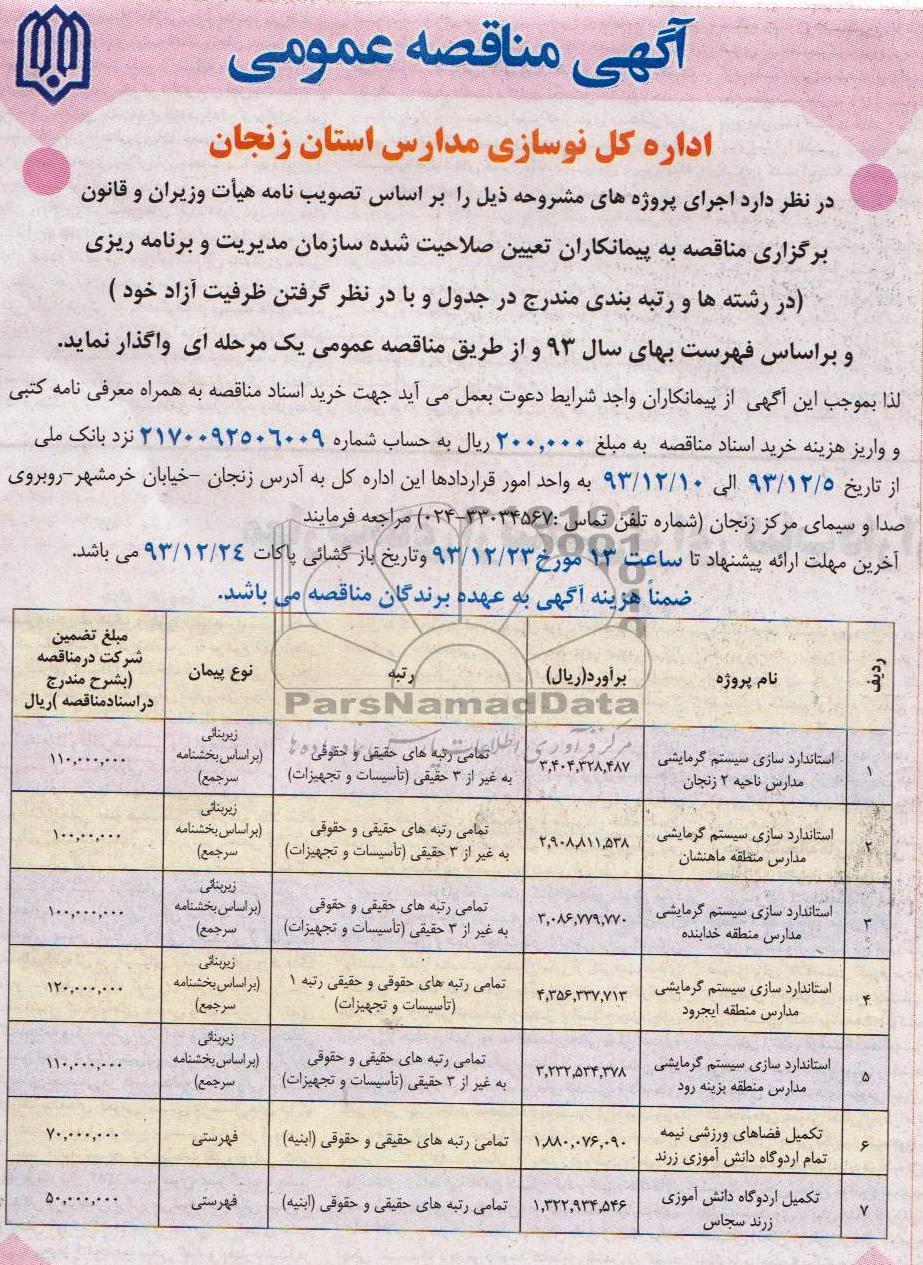 آگهی مناقصه عمومی
اداره کل نوسازی مدارس استان زنجان
در نظر دارد اجرای پروژه های مشروحه ذیل را بر اساس تصویب نامه هیأت وزیران و قانون
برگزاری مناقصه به پیمانکاران تعیین صلاحیت شده سازمان مدیریت و برنامه ریزی
(در رشته ها و رتبه بندی مندرج در جدول و با در نظر گرفتن ظرفیت آزاد خود )
و براساس فهرست بهای سال ۹۳ و از طریق مناقصه عمومی یک مرحله ای واگذار نماید.
لذا بموجب این آگهی از پیمانکاران واجد شرایط دعوت بعمل می آید جهت خرید اسناد مناقصه به همراه معرفی نامه کتبی
و واریز هزینه خرید اسناد مناقصه به مبلغ ۲۰۰,۰۰۰ ریال به حساب شماره ۲۱۷۰۰۹۲۵۰۶۰۰۹ نزد بانک ملی
از تاریخ ۹۳/۱۲/۵ الی ۹۳/۱۲/۱۰ به واحد امور قراردادها این اداره کل به آدرس زنجان -خیابان خرمشهر-روبروی
صدا و سیمای مرکز زنجان (شماره تلفن تماس :۳۳۰۳۴۵۶۷-۰۲۴) مراجعه فرمایند
آخرین مهلت ارائه پیشنهاد تا ساعت ۱۳ مورخ ۹۳/۱۲/۲۳ وتاریخ باز گشائی پاکات ۹۳/۱۲/۲۴ می باشد.
ضمناً هزینه آگهی به عهده برندگان مناقصه می باشد.
ردیف نام پروژه برآورد(ریال) رتبه نوع پیمان مبلغ تضمین
شرکت درمناقصه
(بشرح مندرج
دراسنادمناقصه )ریال
ParsNamadData
۱ استاندارد سازی سیستم گرمایشی ۳,۴۰۴,۳۲۸,۴۸۷ تمامی رتبه های حقیقی و حقوقی زیربنائی ۱۱۰,۰۰۰,۰۰۰
مدارس ناحیه ۲ زنجان به غیر از ۳ حقیقی (تأسیسات و تجهیزات) (براساس بخشنامه
سرجمع)
۲ استاندارد سازی سیستم گرمایشی ۲,۹۰۸,۸۱۱,۵۳۸ تمامی رتبه های حقیقی و حقوقی زیربنائی ۱۰۰,۰۰,۰۰۰
مدارس منطقه ماهنشان به غیر از ۳ حقیقی (تأسیسات و تجهیزات) (براساس بخشنامه
سرجمع)
۳ استاندارد سازی سیستم گرمایشی ۳,۰۸۶,۷۷۹,۷۷۰ تمامی رتبه های حقیقی و حقوقی زیربنائی ۱۰۰,۰۰۰,۰۰۰
مدارس منطقه خدابنده به غیر از ۳ حقیقی (تأسیسات و تجهیزات) (براساس بخشنامه
سرجمع)
۴ استاندارد سازی سیستم گرمایشی ۴,۳۵۶,۳۳۷,۷۱۳ تمامی رتبه های حقوقی و حقیقی رتبه ۱ زیربنائی ۱۲۰,۰۰۰,۰۰۰
مدارس منطقه ایجرود (تأسیسات و تجهیزات) (براساس بخشنامه
سرجمع)
۵ استاندارد سازی سیستم گرمایشی ۳,۲۳۲,۵۳۴,۳۷۸ تمامی رتبه های حقیقی و حقوقی زیربنائی ۱۱۰,۰۰۰,۰۰۰
مدارس منطقه بزینه رود به غیر از ۳ حقیقی (تأسیسات و تجهیزات) (براساس بخشنامه
سرجمع)
۶ تکمیل فضاهای ورزشی نیمه ۱,۸۸۰,۰۷۶,۰۹۰ تمامی رتبه های حقیقی و حقوقی (ابنیه) فهرستی ۷۰,۰۰۰,۰۰۰
تمام اردوگاه دانش آموزی زرند
۷ تکمیل اردوگاه دانش آموزی ۱,۳۲۲,۹۳۴,۵۴۶ تمامی رتبه های حقیقی و حقوقی (ابنیه) فهرستی ۵۰,۰۰۰,۰۰۰
زرند سجاس